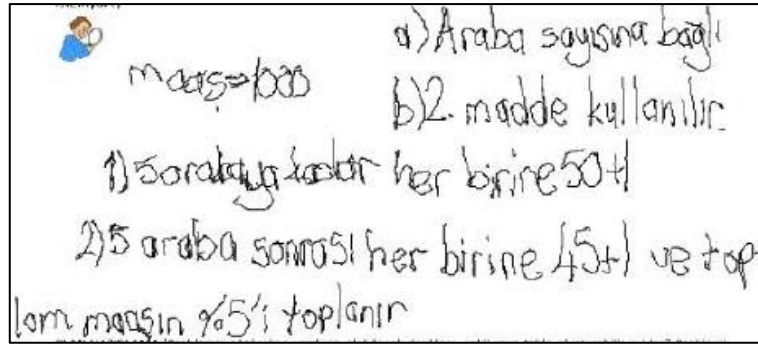 a) Araba sayısına bağlı
maaş=1000
b) 2. madde kullanılır
1) 5 arabaya kadar her birine 50 tl
2) 5 araba sonrası her birine 45 tl ve top-
lam maaşın %5'i toplanır